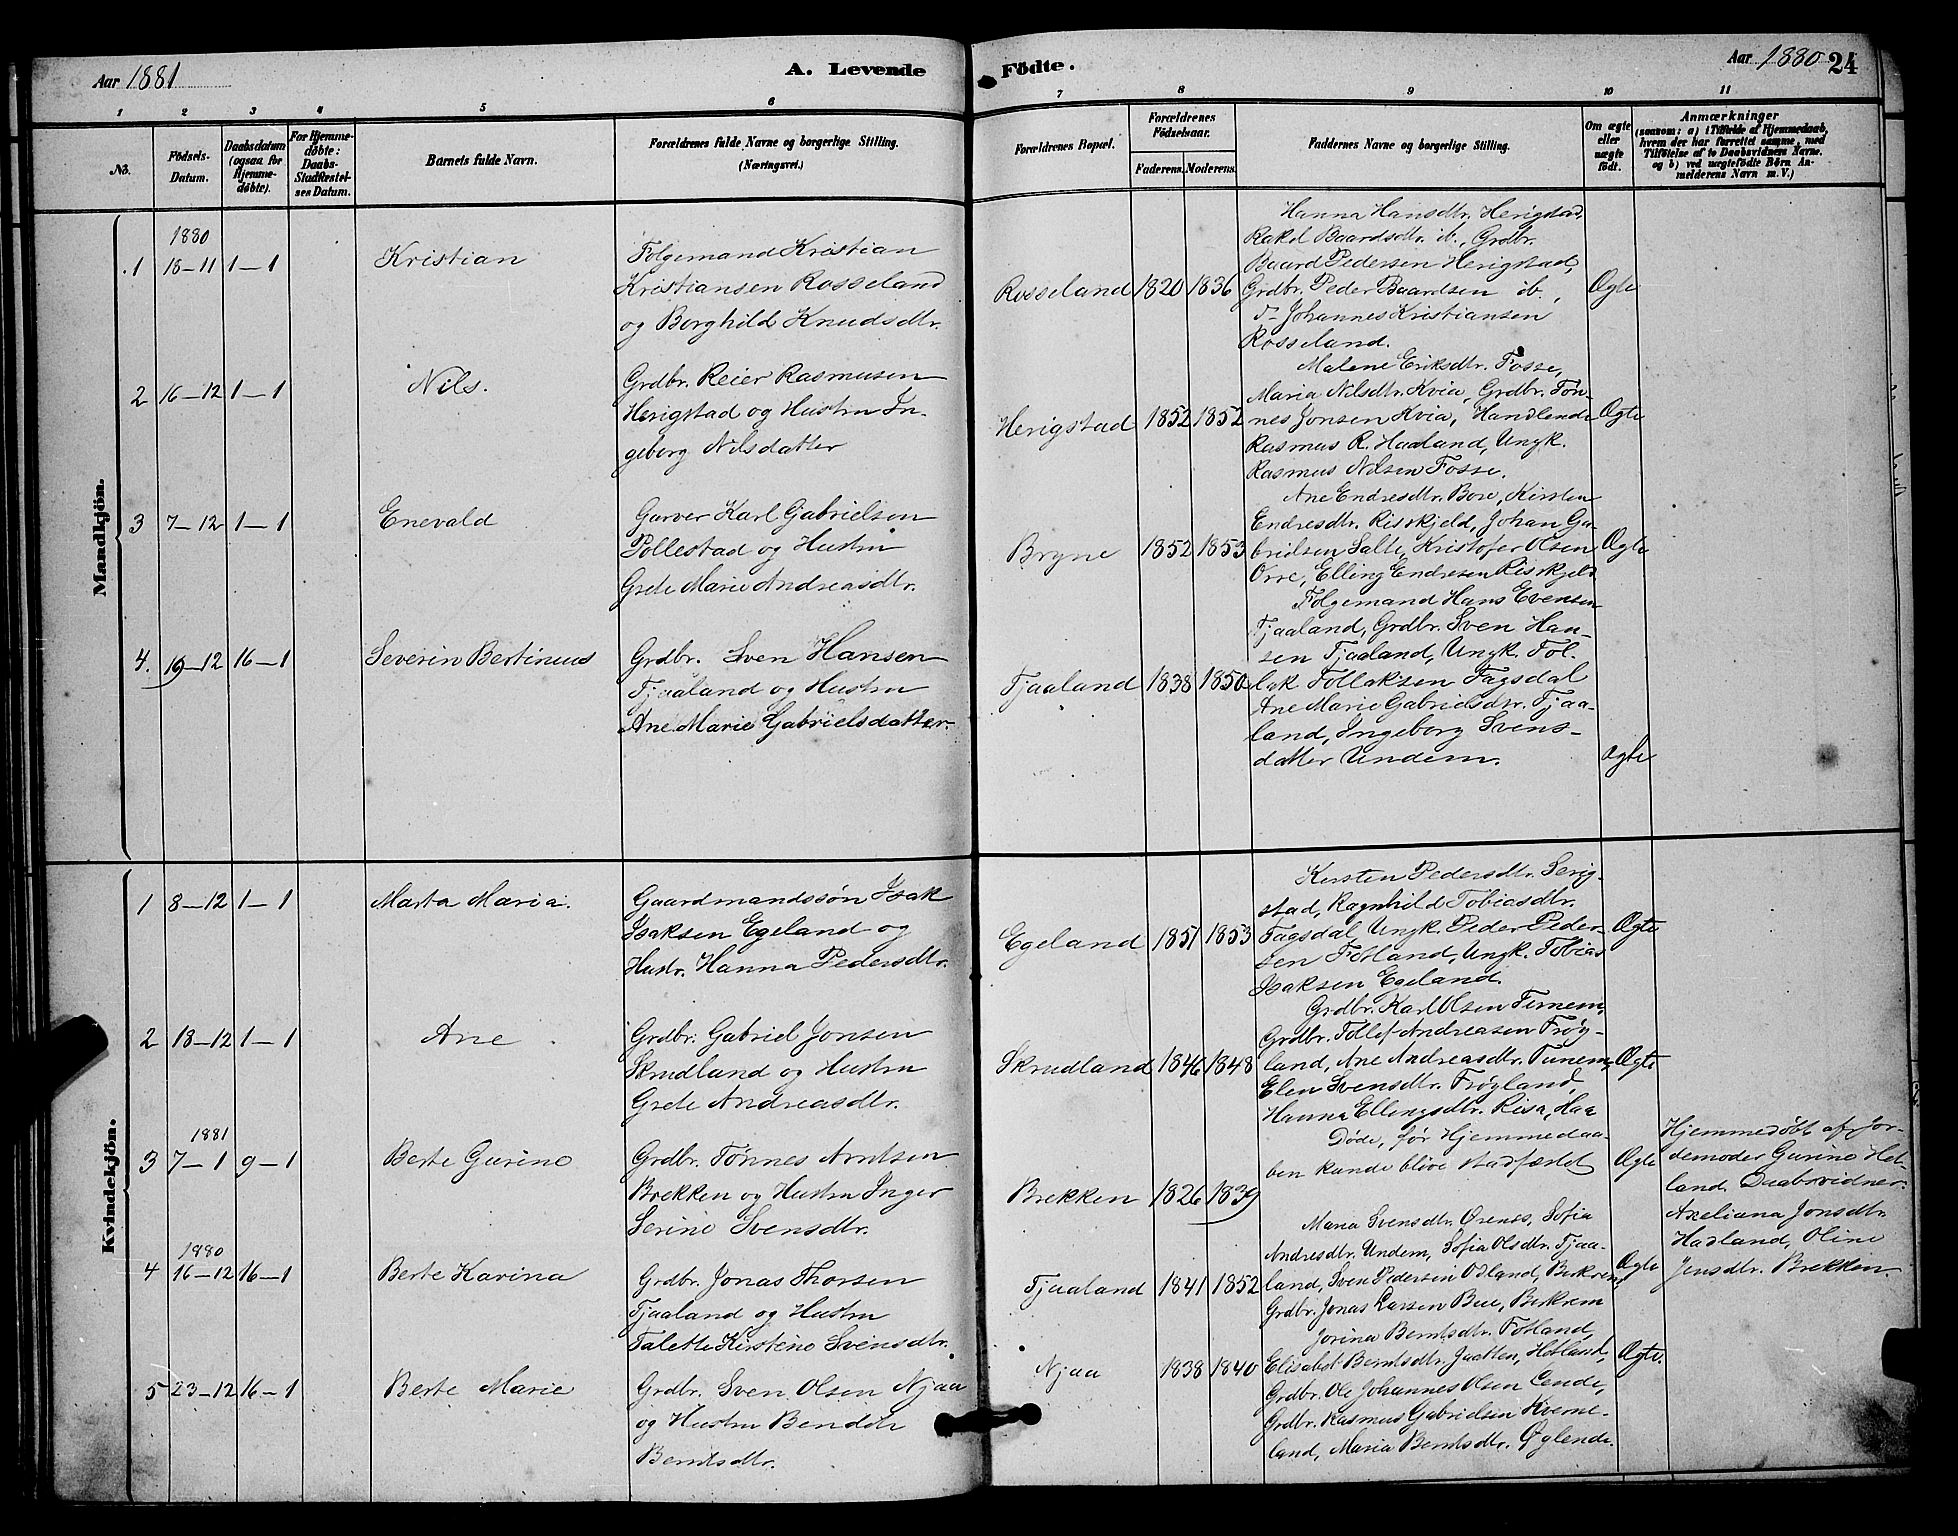 Aar 1881
A. Levende
Födte.
Aar 1880
24
1 2 3 4 5 6 7 8 9 10 11
No.
Födsels-
Datum.
Daabsdatum
(ogsaa for
Hjemme-
döbte).
For Hjemme-
döbte:
Daabs-
Stadfæstel-
ses Datum.
Barnets fulde Navn.
Forældrenes fulde Navne og borgerlige Stilling.
(Næringsvei.)
Forældrenes Bopæl.
Forældrenes
Födselsaar.
Faderens. Moderens.
Faddernes Navne og borgerlige Stilling.
Om ægte
eller
uægte
födt.
Anmærkninger
(saasom: a) i Tilfælde af Hjemmedaab,
hvem der har forrettet samme, med
Tilföielse af to Daabsvidners Navne,
og b) ved uægtefödte Börn An-
melderens Navn m. V.)
Mandkjön.
1
1880
18-11
1-1
Kristian
Folgemand Kristian
Kristiansen Rosseland
og Borghild Knudsdtr.
Rosseland
1820
1836
Hanna Hansdtr. Herigstad,
Rakel Baardsdtr. ib., Grdbr.
Baard Pedersen Herigstad,
Grdbr. Peder Baardsen ib.,
Johannes Kristiansen
Rosseland.
Ægte
2
16-12
1-1
Nils.
Grdbr. Reier Rasmusen
Herigstad og Hustru In-
geborg Nilsdatter
Herigstad
1852
1852
Malene Eriksdtr. Fosse,
Maria Nilsdtr. Kvia, Grdbr. Tön-
nes Jonsen Kvia, Handlende
Rasmus R. Haaland, Ungk.
Rasmus Nilsen Fosse.
Ægte
3
7-12
1-1
Enevald
Garver Karl Gabrielsen
Pollestad og Hustru
Grete Marie Andreasdtr.
Bryne
1852
1853
Ane Endresdtr. Bore, Kirsten
Endresdtr. Riskjeld, Johan Ga-
brielsen Salte, Kristofer Olsen
Orre, Elling Endresen Riskjeld
Ægte
4.
19-12
16-1
Severin Bertinius
Grdbr. Sven Hansen
Tjaaland og Hustru
Ane Marie Gabrielsdatter
Tjaaland
1838
1850
Folgemand Hans Evensen
Tjaaland, Grdbr. Sven Han-
sen Tjaaland, Ungk. Tol-
lak Tollaksen Fagsdal
Ane Marie Gabrielsdtr. Tjaa-
land, Ingeborg Svens-
datter Undem.
Ægte
Kvindekjön.
1
8-12
1-1
Marta Maria.
Gaardmandssön Isak
Isaksen Egeland og
Hustr. Hanna Pedersdtr.
Egeland
1851
1853
Kirsten Pedersdtr. Serig-
stad, Ragnhild Tobiasdtr.
Fagsdal, Ungk. Peder Peder-
sen Fotland, Ungk. Tobias
Isaksen Egeland.
Ægte
2
18-12
1-1
Ane
Grdbr. Gabriel Jonsen
Skrudland og Hustru
Grete Andreasdtr.
Skrudland
1846
1848
Grdbr. Karl Olsen Tunem,
Grdbr. Tollef Andreasen Fröy-
land, Ane Andreasdtr. Tunem,
Elen Svensdtr. Fröyland,
Hanna Ellingsdtr. Risa, Haa
Ægte
3
1881
7-1
9-1
Berte Gurine
Grdbr. Tönnes Arntsen
Brekken og Hustru Inger
Serine Svensdtr.
Brekken
1826
1839
Döde, för Hjemmedaa-
ben kunde blive stadfæstet
Ægte
Hjemmedöbt af Jor-
demoder Gurine Het-
land. Daabsvidner:
Axeliana Jonsdtr.
Hadland, Oline
Jensdtr. Brekken.
4
1880
16-12
16-1
Berte Karina
Grdbr. Jonas Thorsen
Tjaaland og Hustru
Talette Kirstine Svensdtr.
Tjaaland
1841
1852
Maria Svensdtr. Örenes, Sofia
Andresdtr. Undem, Sofia Olsdtr. Tjaa-
land, Sven Pedersen Odland, Birkrem,
Grdbr. Jonas Larsen Bue, Birkrem
Ægte
5
23-12
16-1
Berte Marie
Grdbr. Sven Olsen Njaa
og Hustru Bendete
Berntsdtr.
Njaa
1838
1840
Jorina Berntsdtr. Fotland,
Elisabet Berntsdtr. Jaatten, Hetland,
Grdbr. Ole Johannes Olsen Lende,
Grdbr. Rasmus Gabrielsen Kverne-
land, Maria Berntsdtr. Öglende.
Ægte.